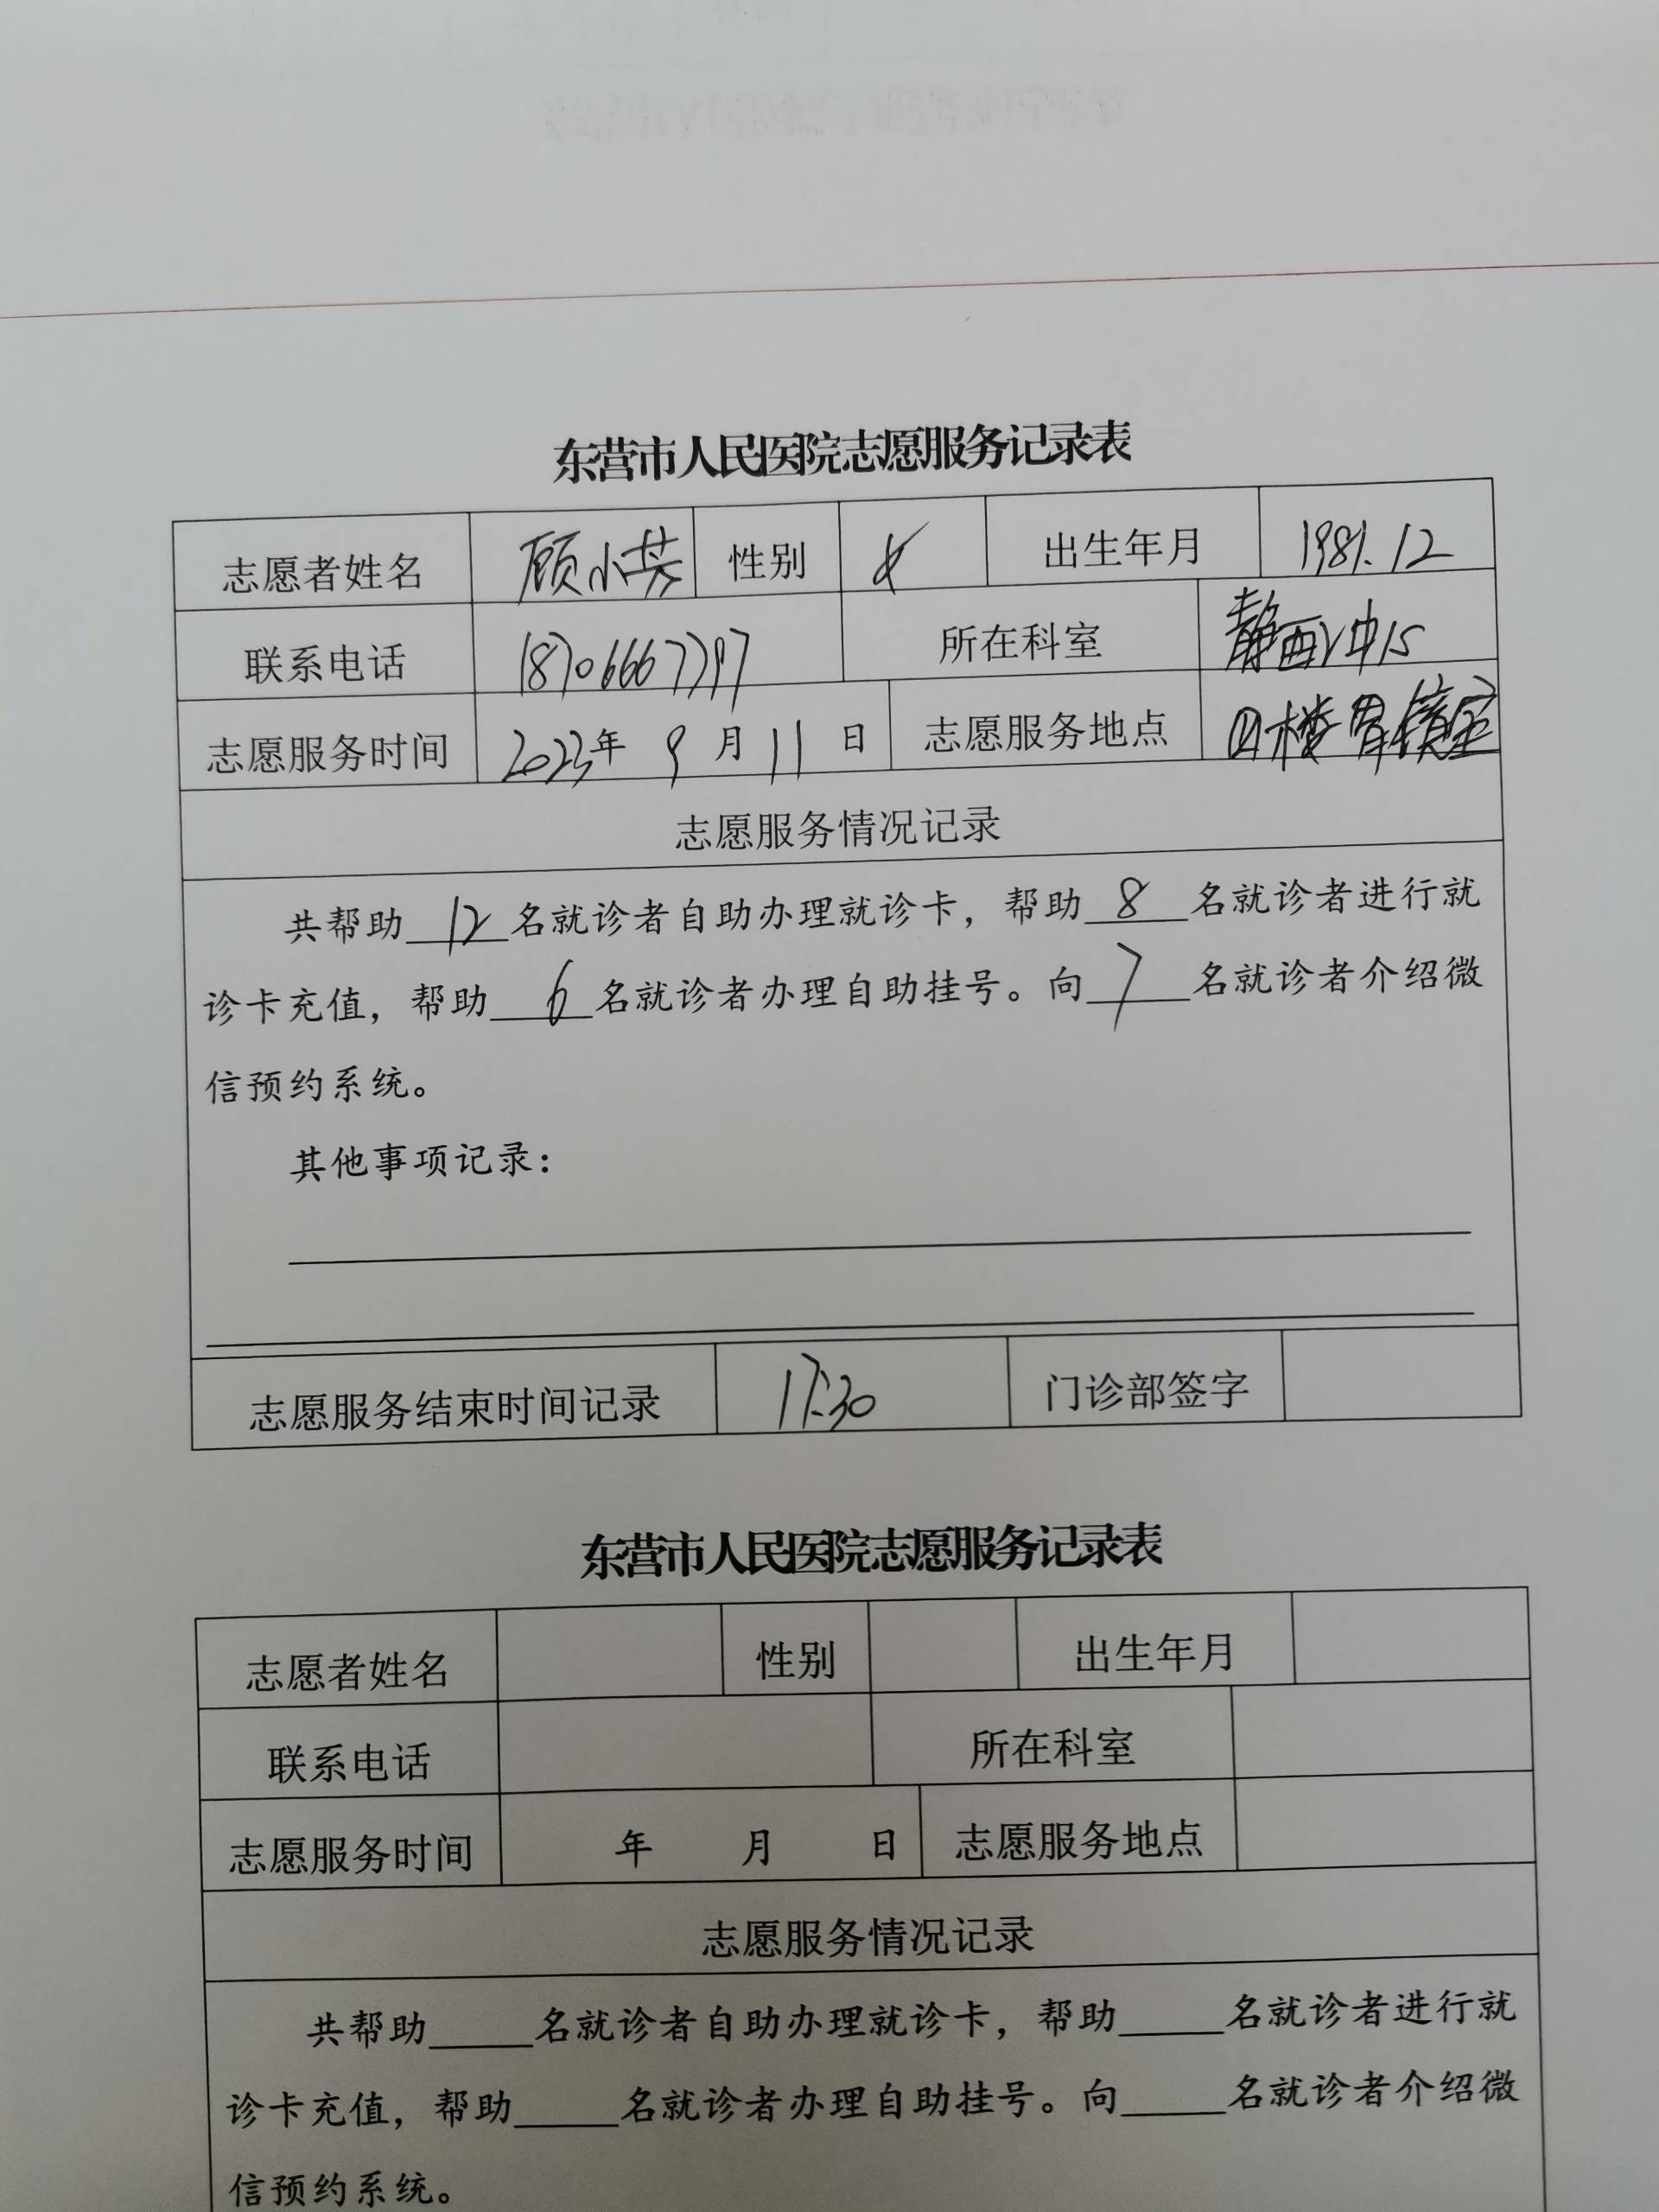 东营市人民医院志愿服务记录表
志愿者姓名 顾小芳 性别 女 出生年月 1981.12
联系电话 18706667797 所在科室 静配中心
志愿服务时间 2023年 9 月 11 日 志愿服务地点 四楼胃镜室
志愿服务情况记录
共帮助 12 名就诊者自助办理就诊卡，帮助 8 名就诊者进行就
诊卡充值，帮助 6 名就诊者办理自助挂号。向 7 名就诊者介绍微
信预约系统。
其他事项记录：
志愿服务结束时间记录 17:30 门诊部签字
东营市人民医院志愿服务记录表
志愿者姓名 性别 出生年月
联系电话 所在科室
志愿服务时间 年 月 日 志愿服务地点
志愿服务情况记录
共帮助_____名就诊者自助办理就诊卡，帮助_____名就诊者进行就
诊卡充值，帮助_____名就诊者办理自助挂号。向_____名就诊者介绍微
信预约系统。